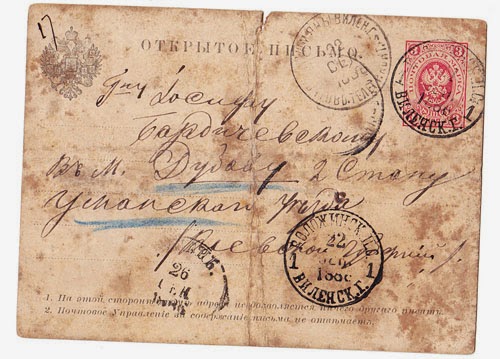 17
ОТКРЫТОЕ ПИСЬМО.
3 3
ВИЛЕНСК.Г. 1
Гну Іосифу
Бардичевскому
въ м. Дубову 2 Стану
Уманскаго Уѣзда
Кіевской
ВОЛОЖИНСК.
1 22 1
1886
ВИЛЕНСК.Г.
26
СЕН
1. На этой сторонѣ, кромѣ адреса не дозволяется ничего другаго писать.
2. Почтовое Управленіе за содержаніе письма не отвѣчаетъ.